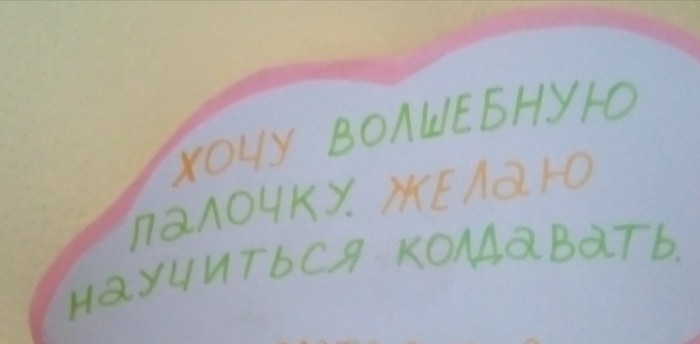 ХОЧУ ВОЛШЕБНУЮ
ПАЛОЧКУ. ЖЕЛАЮ
НАУЧИТЬСЯ КОЛДАВАТЬ.